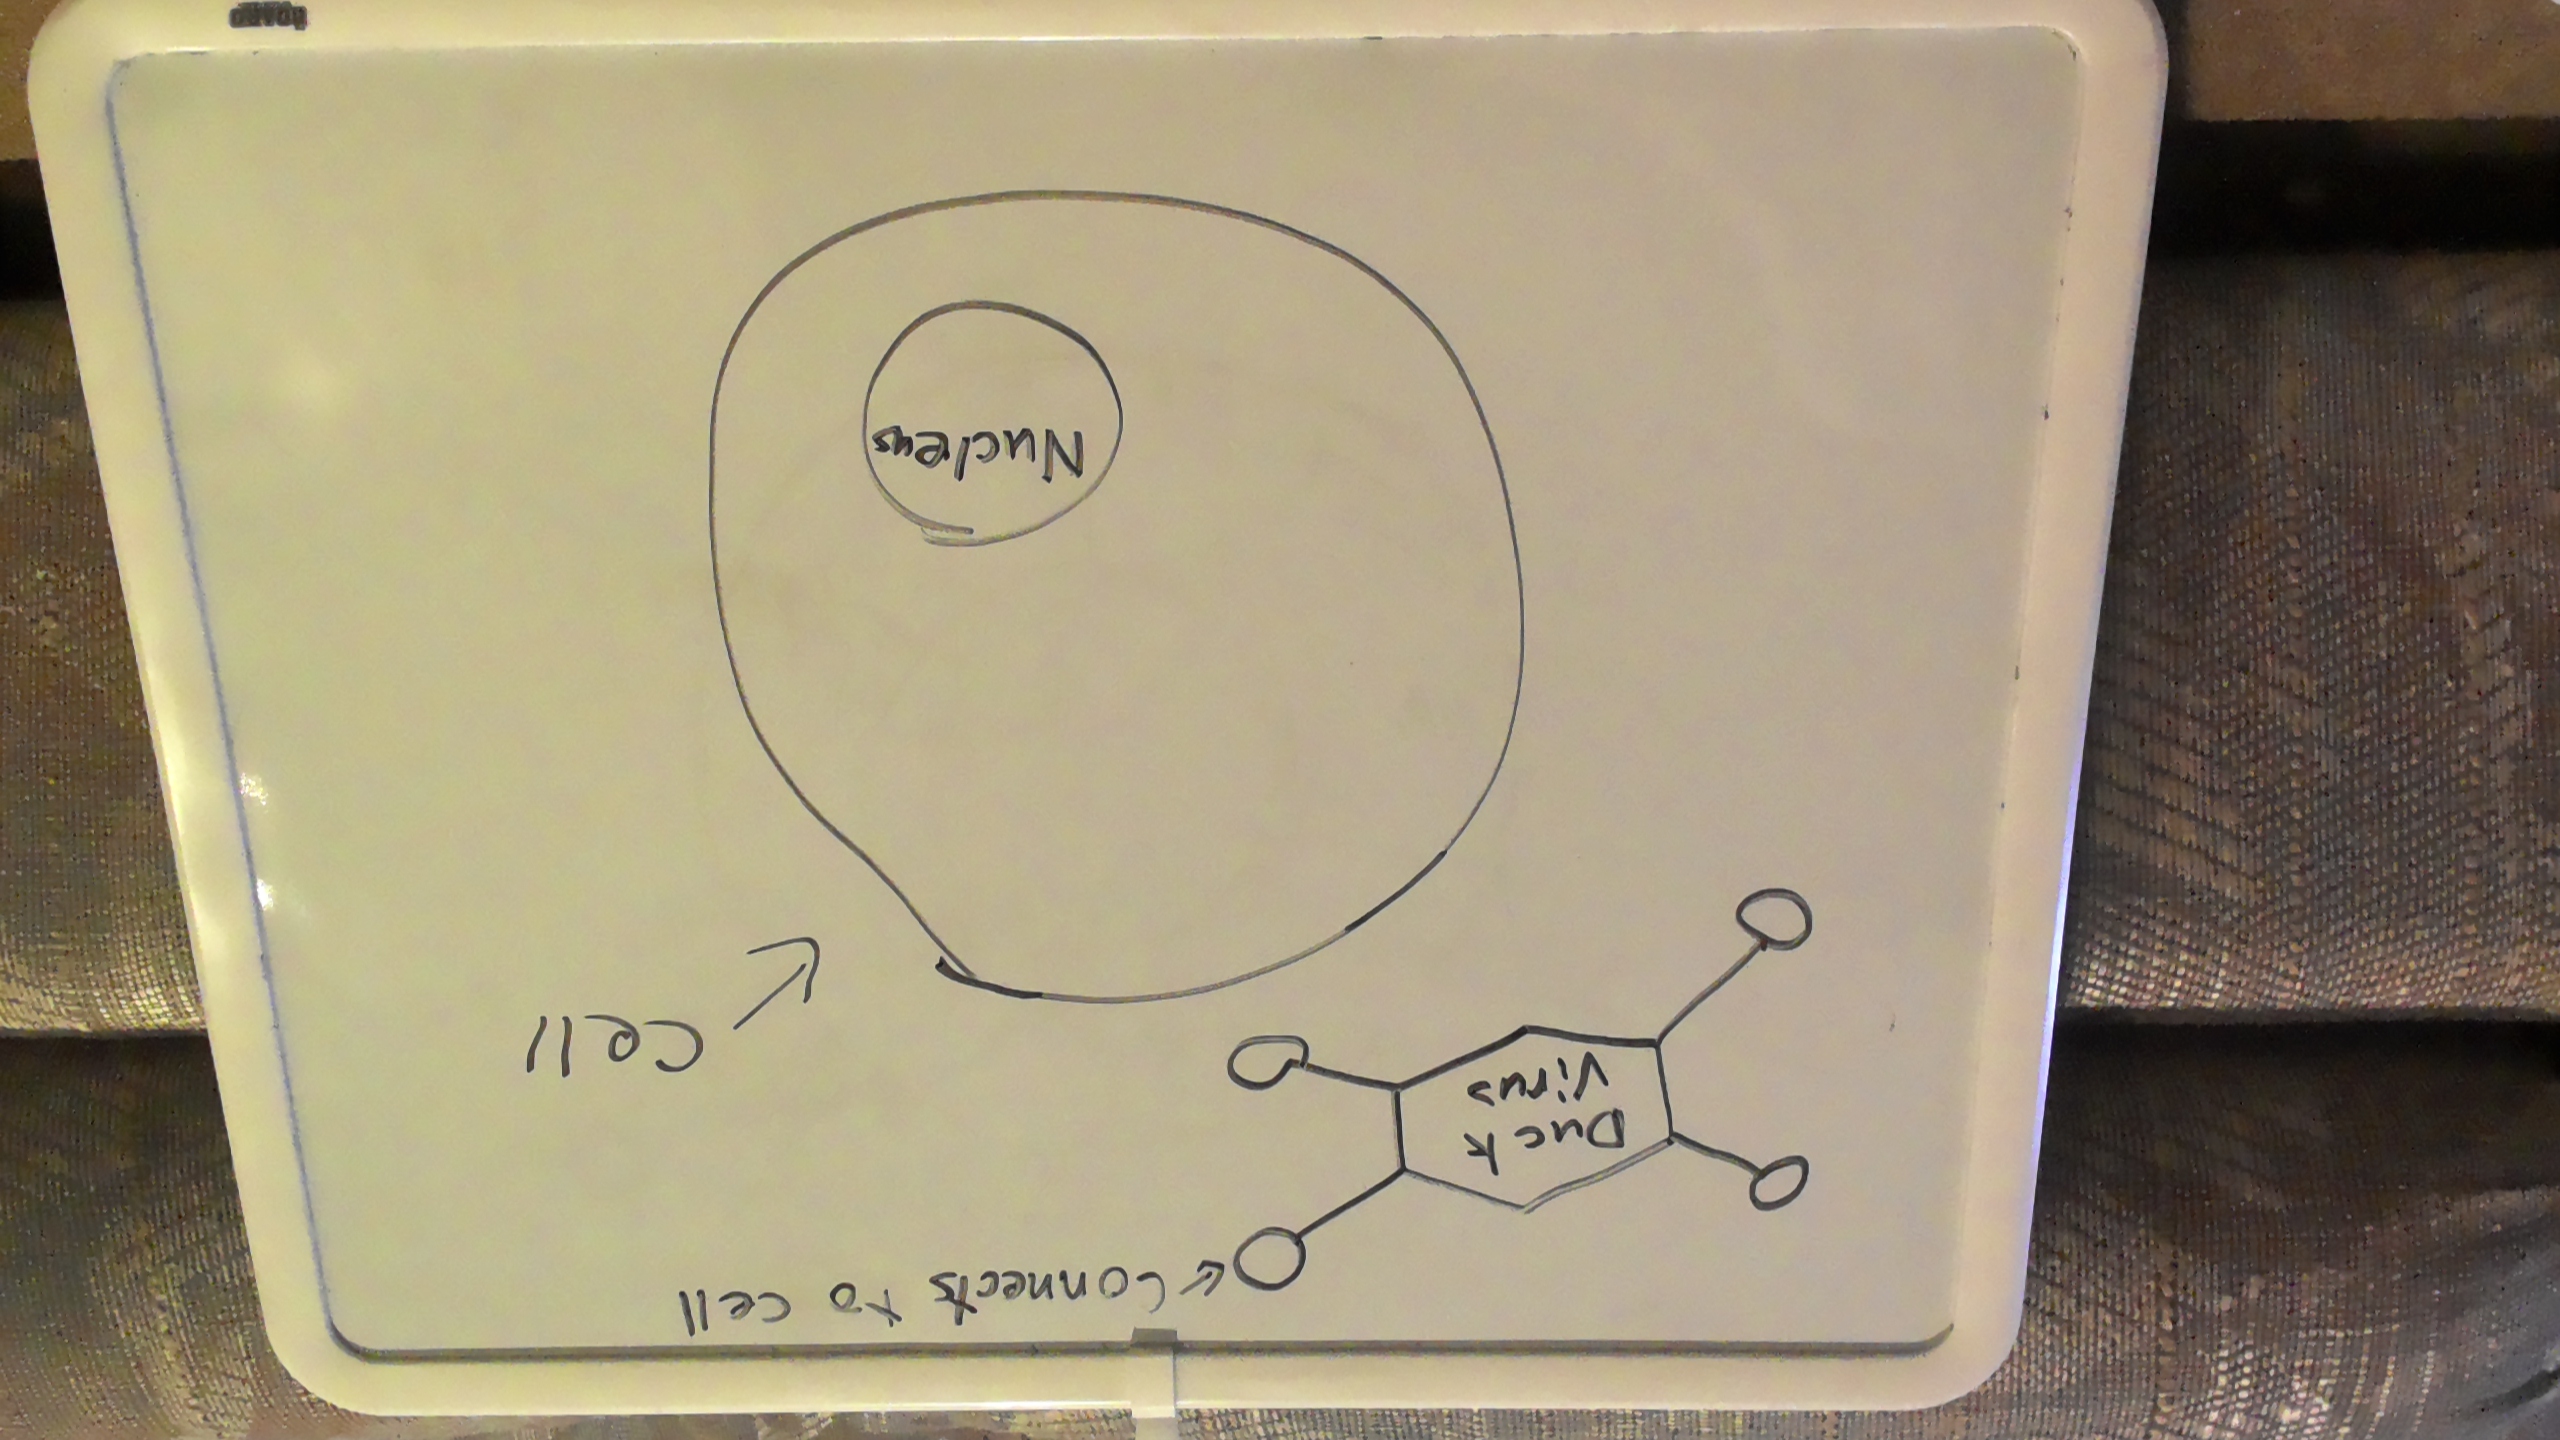 Connects to cell
Duck
Virus
Cell
Nucleus
BOARD